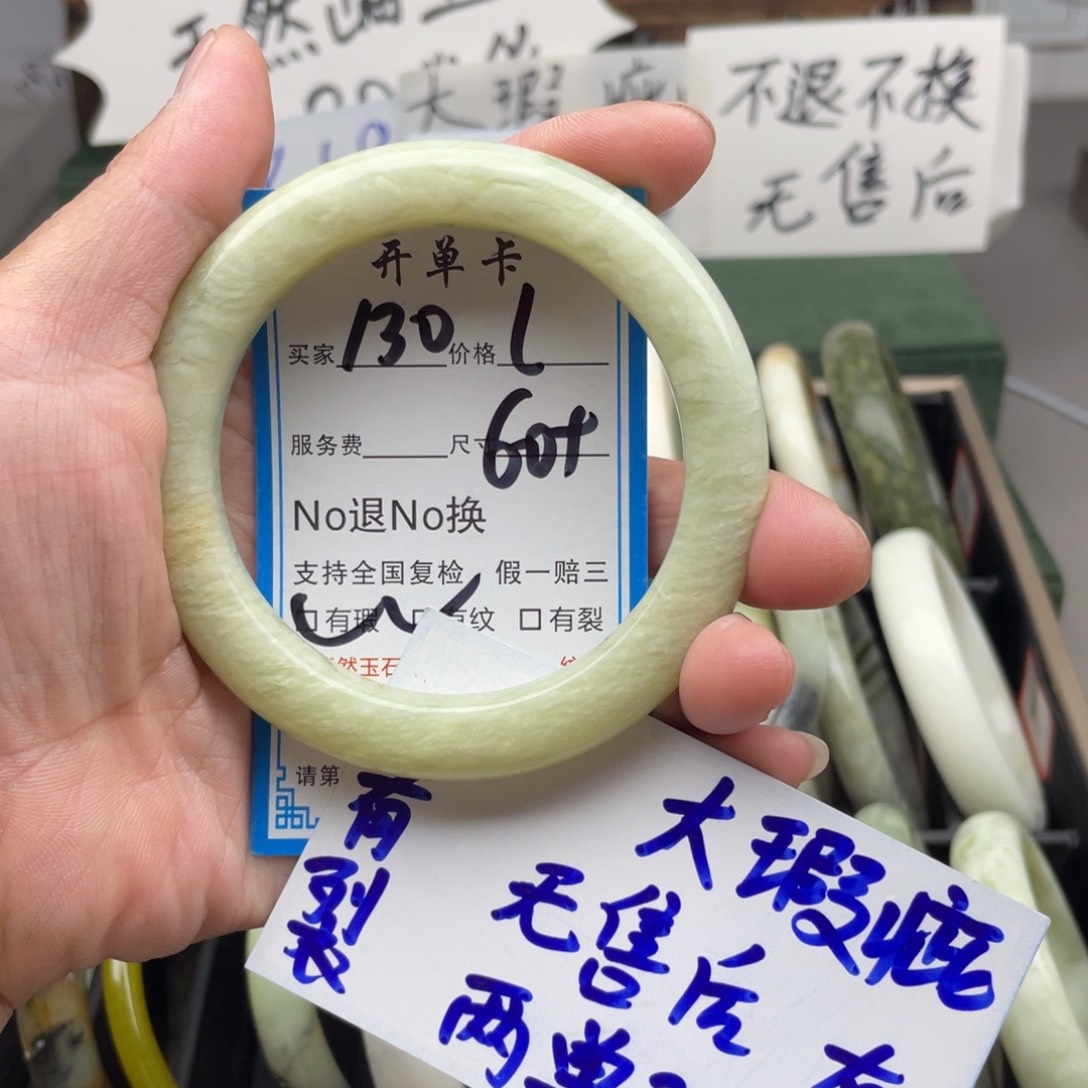 天然
大瑕疵
不退不换
无售后
开单卡
买家 130 价格 L
服务费 尺寸 60+
No退No换
支持全国复检 假一赔三
有瑕 有纹 口有裂
然玉石
请第
有裂
大瑕疵
无售后
两单